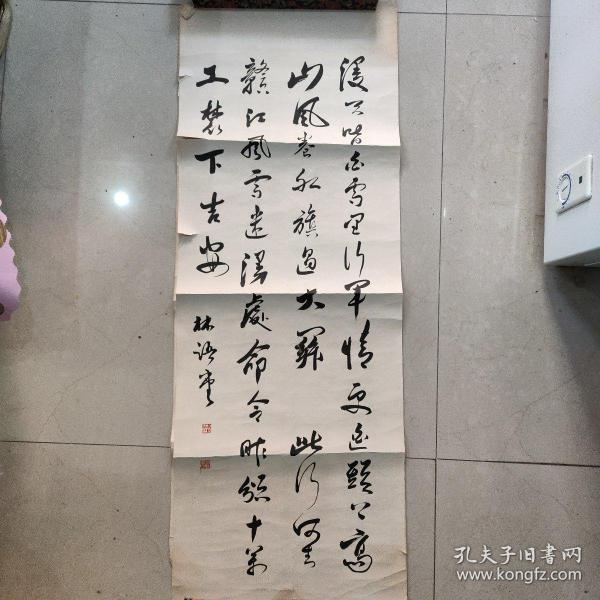 漫天皆白雪里行军情更迫頭上高
山風卷紅旗過大關 此行何去
贛江風雪迷漫處命令昨頒十萬
工農下吉安
林語堂
孔夫子旧书网
www.kongfz.com